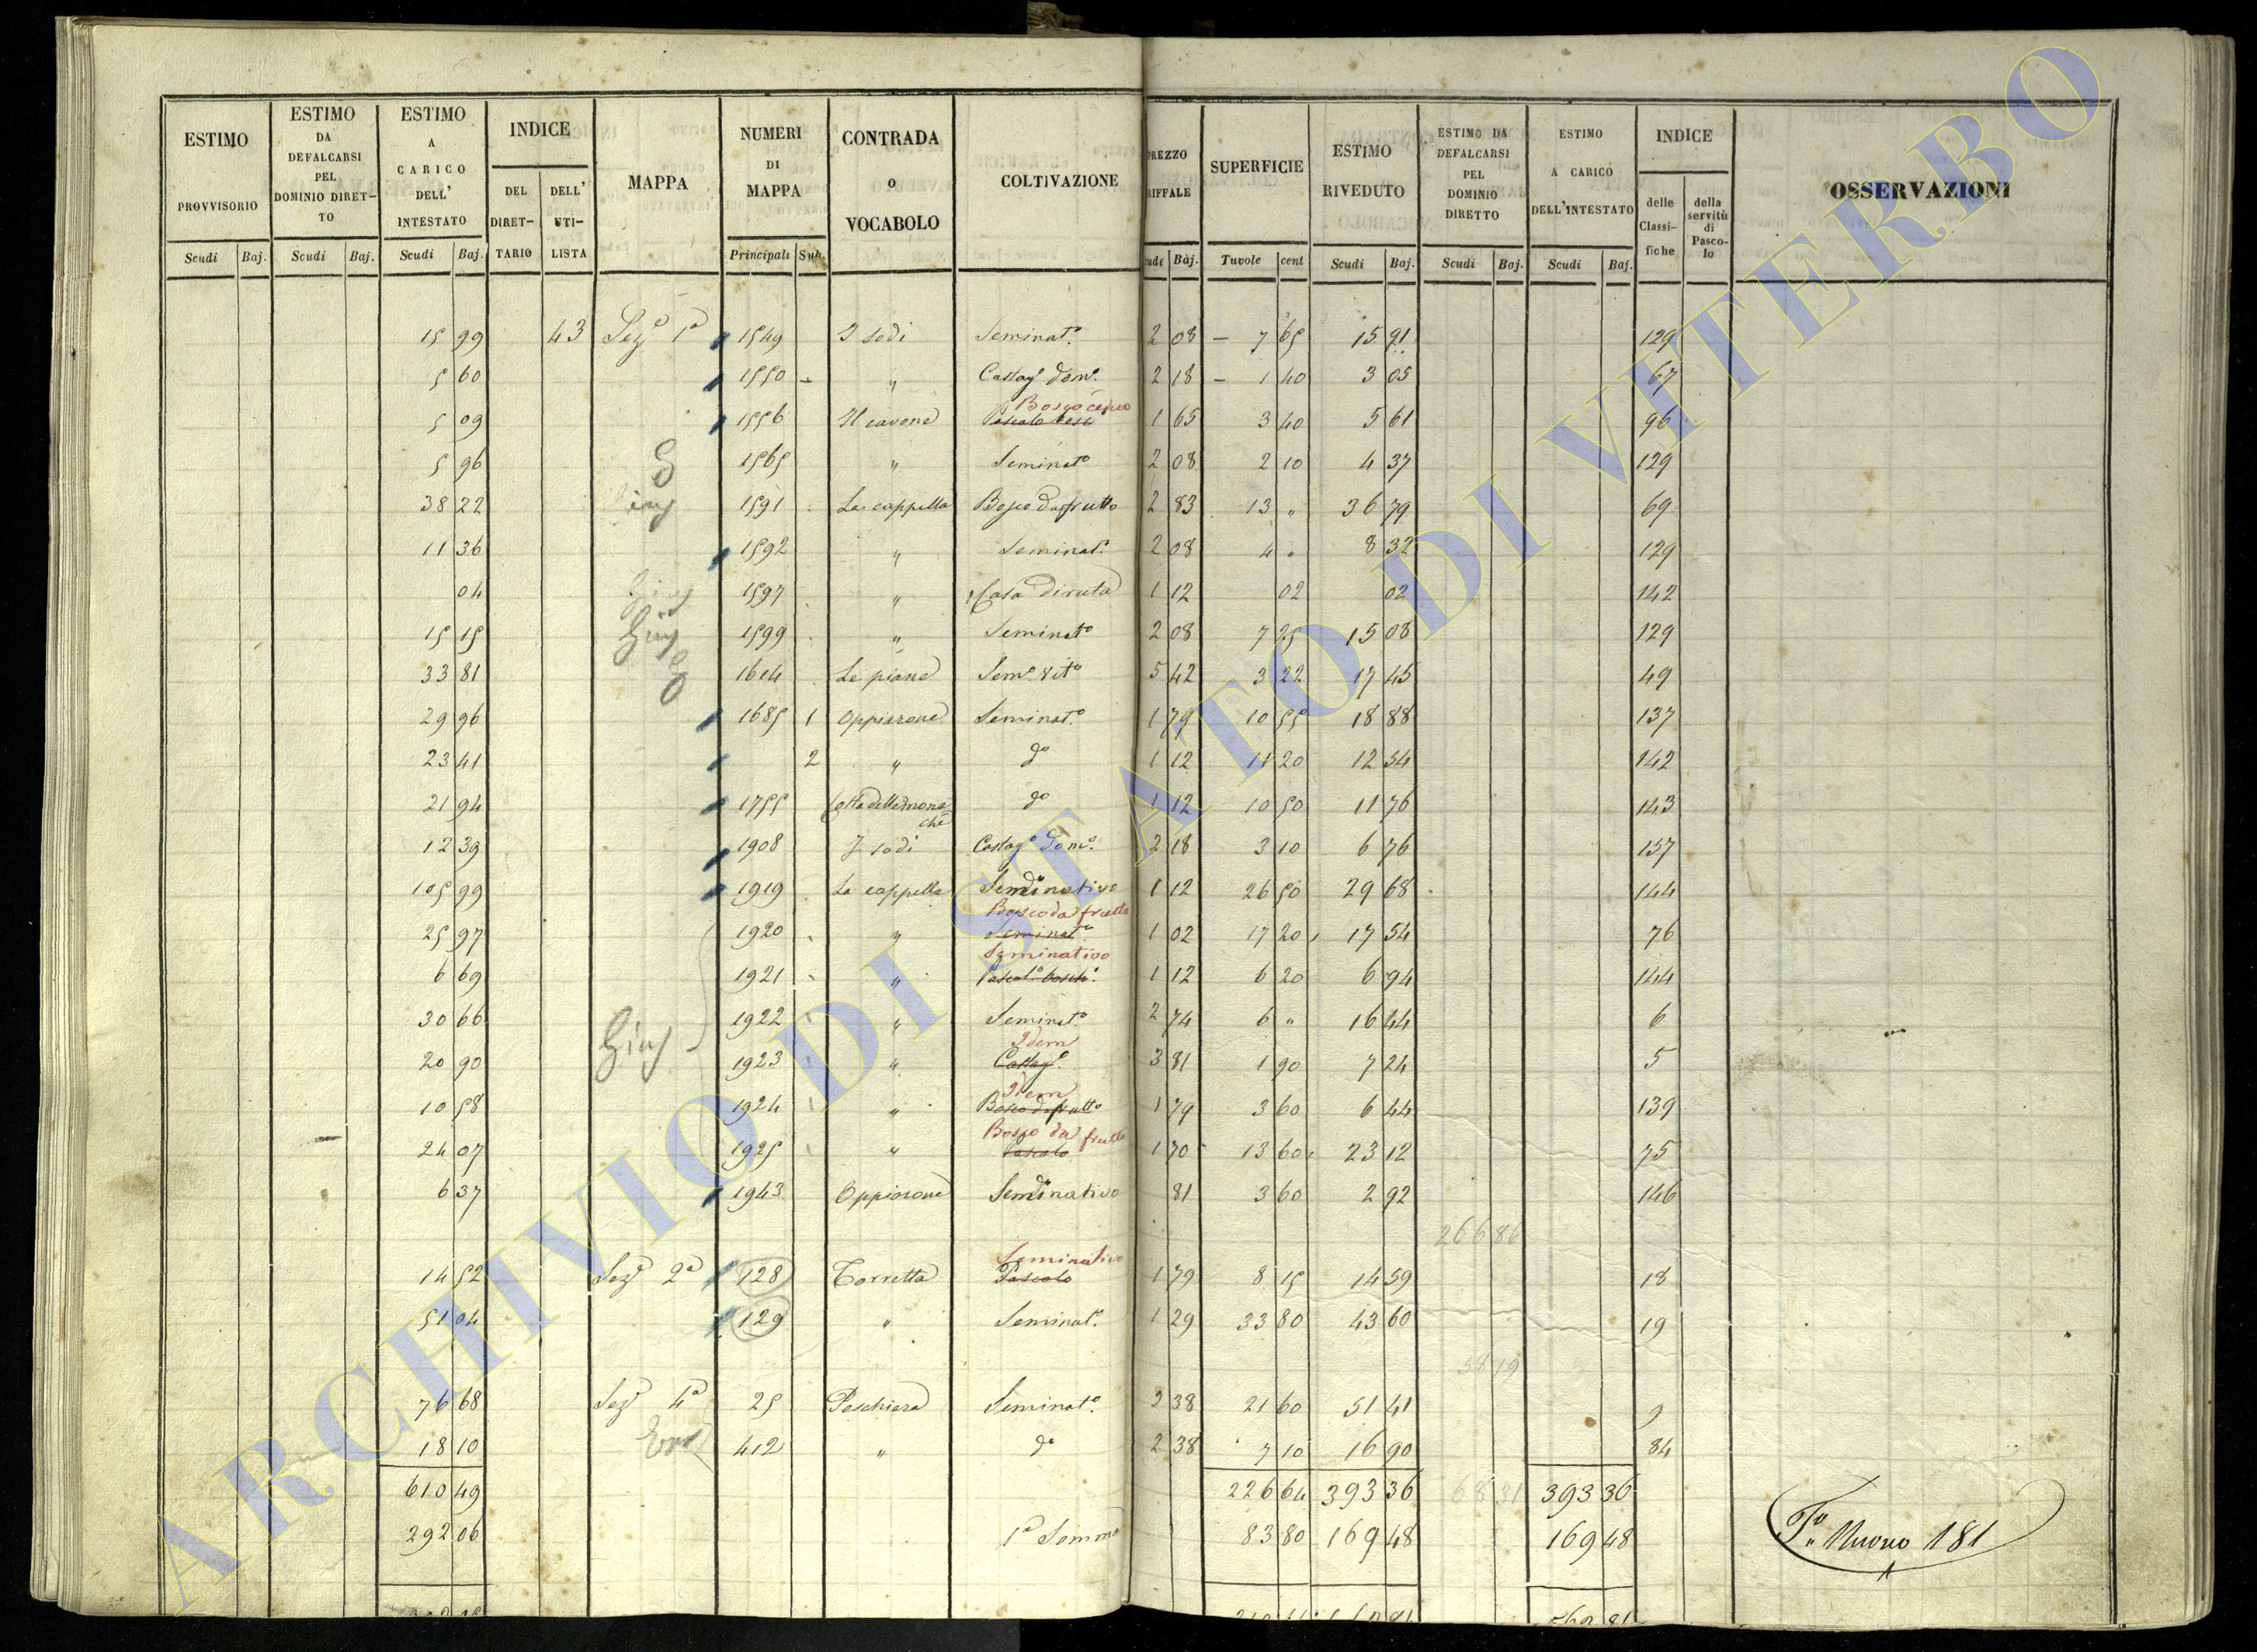 ESTIMO PROVVISORIO Scudi Baj.
ESTIMO DA DEFALCARSI PEL DOMINIO DIRETTO Scudi Baj.
ESTIMO A CARICO DELL' INTESTATO Scudi Baj.
INDICE DEL DIRETTARIO DELL' UTILISTA
MAPPA
NUMERI DI MAPPA Principali Sub.
CONTRADA o VOCABOLO
COLTIVAZIONE
PREZZO RIFFALE Baj.
SUPERFICIE Tavole cent
ESTIMO RIVEDUTO Scudi Baj.
ESTIMO DA DEFALCARSI PEL DOMINIO DIRETTO Scudi Baj.
ESTIMO A CARICO DELL'INTESTATO Scudi Baj.
INDICE delle Classifiche della servitù di Pascolo
OSSERVAZIONI
15 99 43 Sez.e 1a 1549 I sodi Seminat.o 2 08 – 7 65 15 91 129
5 60 1550 " Castag.o dom.o 2 18 – 1 40 3 05 67
Bosco ceduo
5 09 1556 Il cavone Pascolo 1 65 3 40 5 61 96
5 96 1565 " Seminat.o 2 08 2 10 4 37 129
38 22 1591 La cappella Bosco da frutto 2 83 13 " 36 79 69
11 36 1592 " Seminat.o 2 08 4 " 8 32 129
04 1597 " Casa diruta 1 12 02 02 142
15 15 1599 " Seminat.o 2 08 7 25 15 08 129
33 81 1614 Le piane Sem.o Vit.o 5 42 3 22 17 45 49
29 96 1685 1 Oppiarone Seminat.o 1 79 10 55 18 88 137
23 41 2 " d.o 1 12 11 20 12 54 142
21 94 1755 delle mona d.o 1 12 10 50 11 76 143
che
12 39 1908 I sodi Castag.o Dom.o 2 18 3 10 6 76 137
105 99 1919 La cappella Seminativo 1 12 26 50 29 68 144
Bosco da frutto
25 97 1920 " Seminat.o 1 02 17 20 17 54 76
Seminativo
6 69 1921 " Pascol.o bosch.o 1 12 6 20 6 94 144
30 66 1922 " Seminat.o 2 74 6 " 16 44 6
Idem
20 90 1923 " Castag.o 3 81 1 90 7 24 5
Idem
10 58 1924 " Bosco da frutto 1 79 3 60 6 44 139
Bosco da frutto
24 07 1925 " Pascolo 1 70 13 60 23 12 75
6 37 1943 Oppiarone Seminativo 81 3 60 2 92 146
266 86
Seminativo
14 52 Sez.e 2a 128 Torretta Pascolo 1 79 8 15 14 59 18
51 04 129 " Seminat.o 1 29 33 80 43 60 19
58 19
76 68 Sez.e 4a 25 Peschiera Seminat.o 2 38 21 60 51 41 9
18 10 412 " d.o 2 38 7 10 16 90 84
610 49 226 64 393 36 68 31 393 36
292 06 1a Somma 83 80 169 48 169 48
F.o Nuovo 181
ARCHIVIO DI STATO DI VITERBO